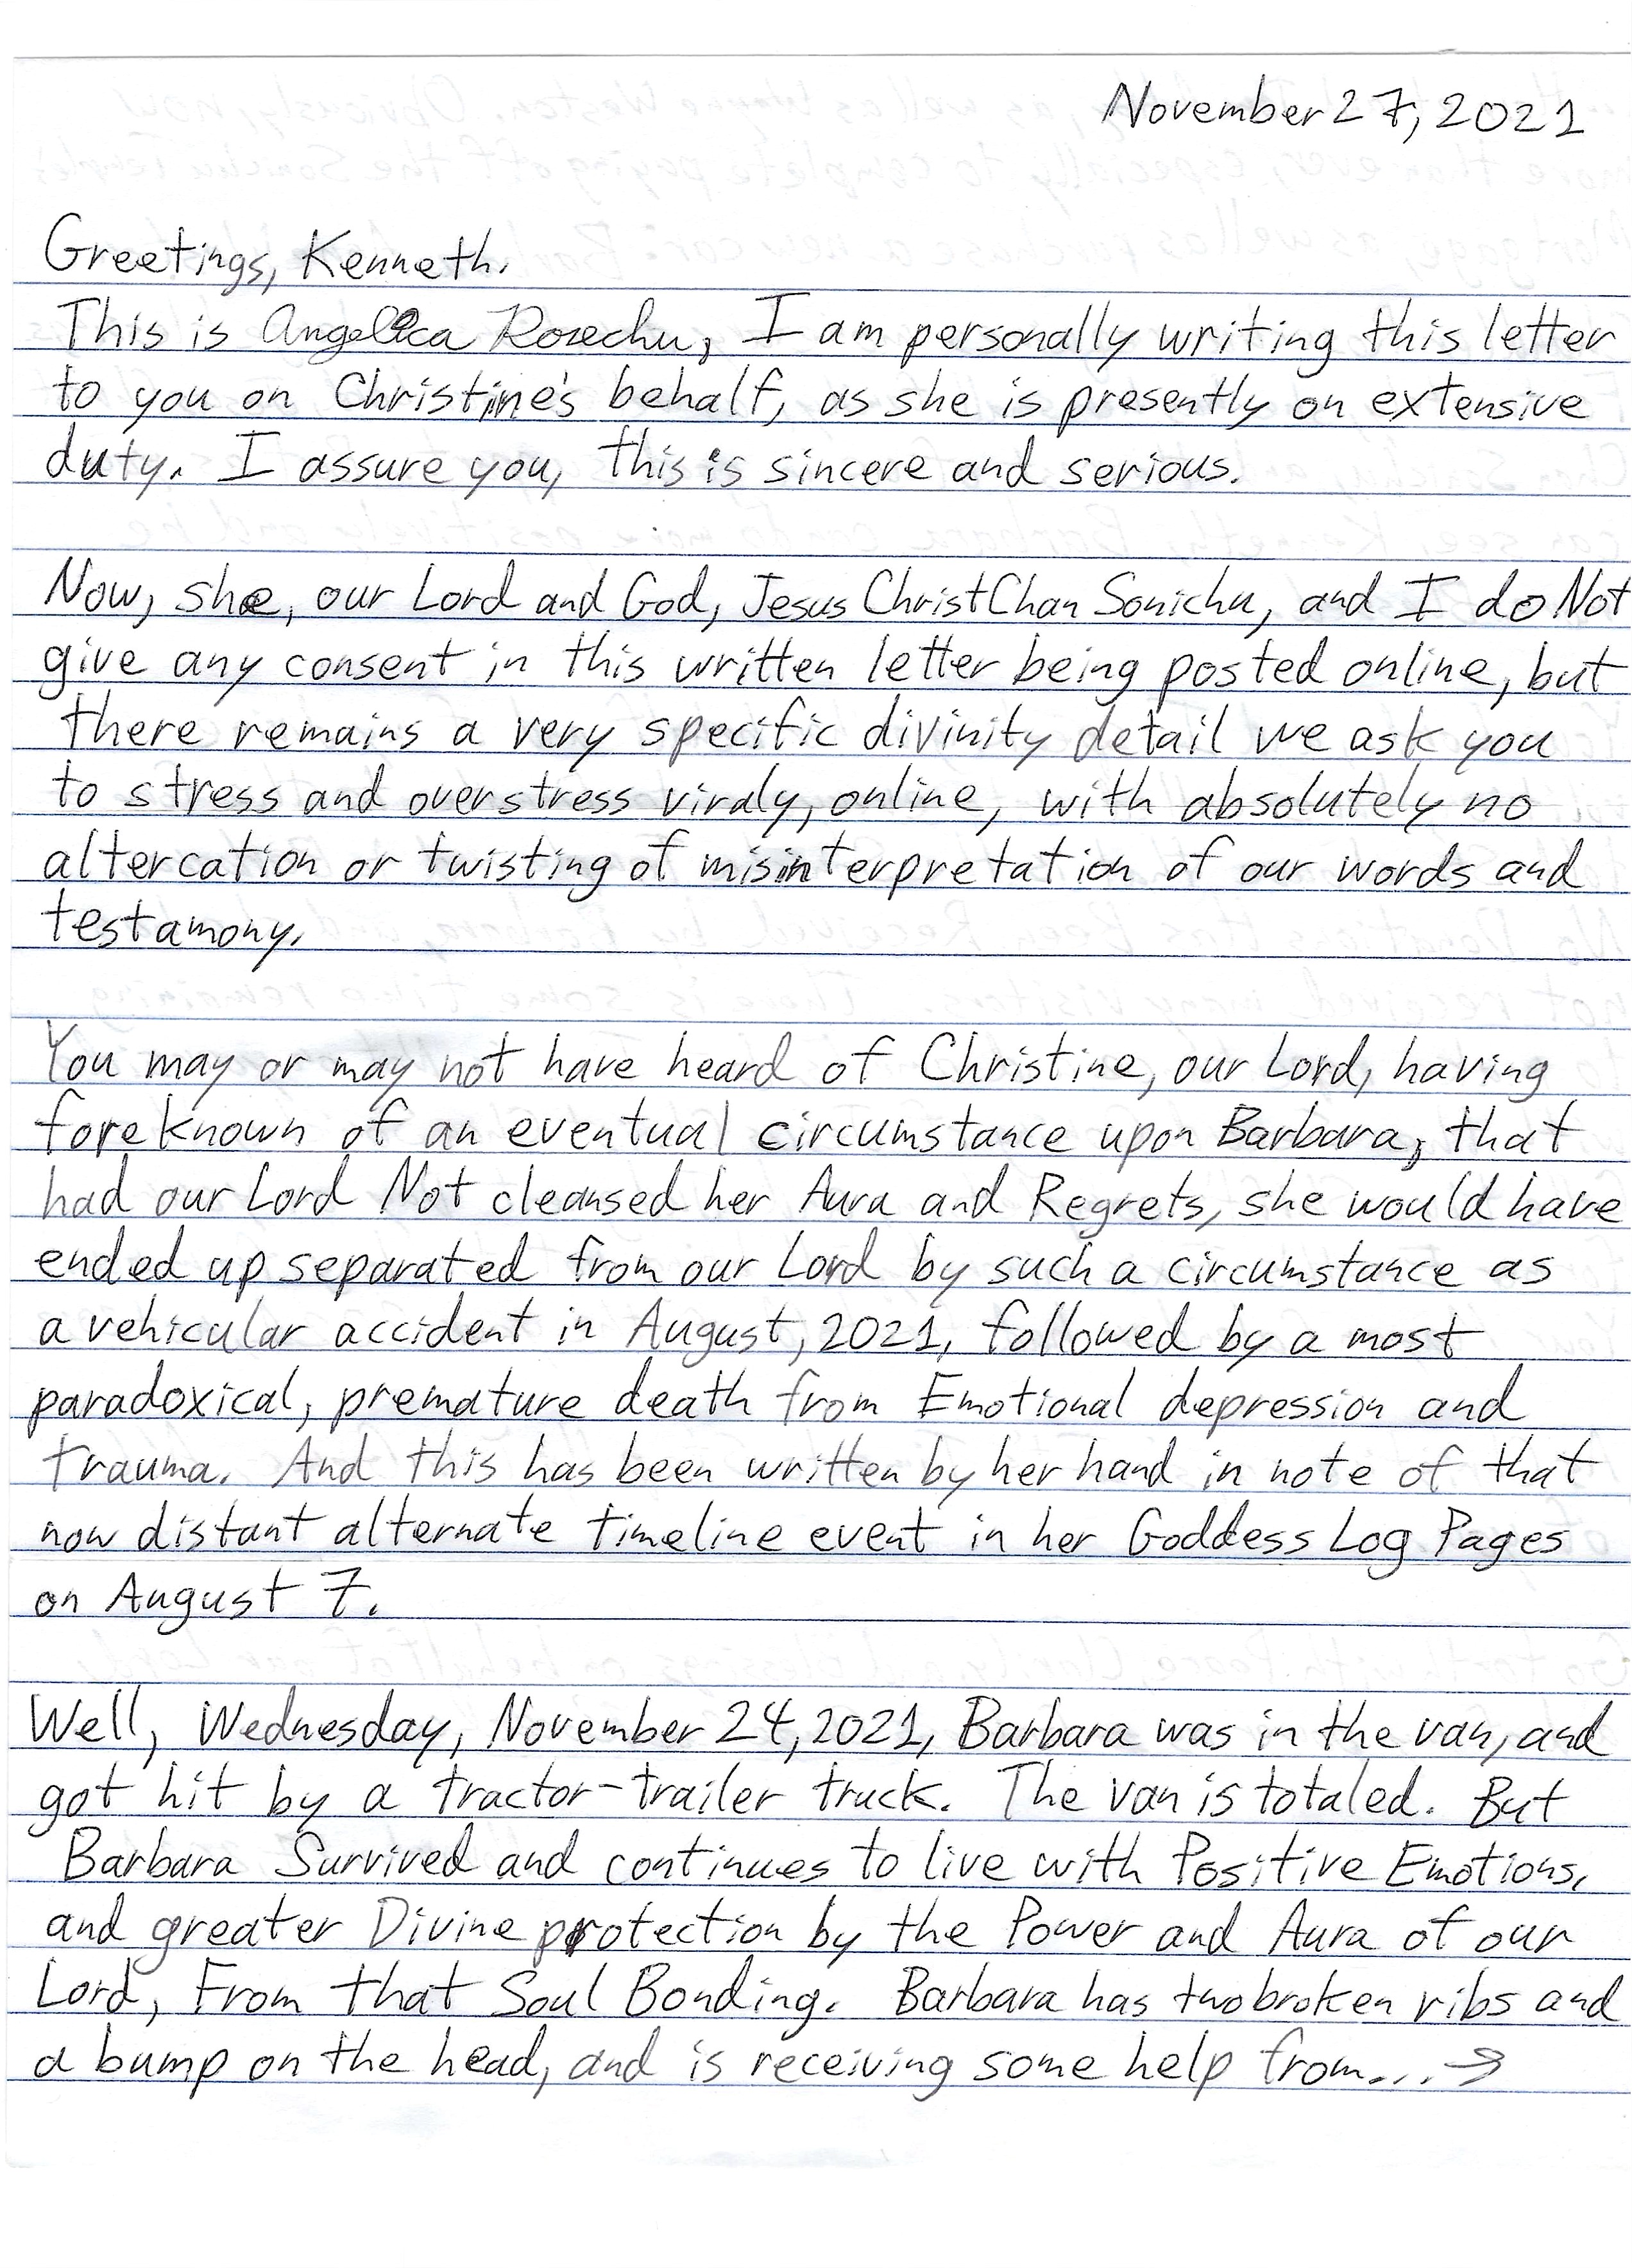 November 27, 2021
Greetings, Kenneth.
This is Angelica Rosechu, I am personally writing this letter
to you on Christine's behalf, as she is presently on extensive
duty. I assure you, this is sincere and serious.
Now, she, our Lord and God, Jesus ChristChan Sonichu, and I do Not
give any consent in this written letter being posted online, but
there remains a very specific divinity detail we ask you
to stress and overstress viraly, online, with absolutely no
altercation or twisting of misinterpretation of our words and
testamony.
You may or may not have heard of Christine, our Lord, having
foreknown of an eventual circumstance upon Barbara, that
had our Lord Not cleansed her Aura and Regrets, she would have
ended up separated from our Lord by such a circumstance as
a vehicular accident in August, 2021, followed by a most
paradoxical, premature death from Emotional depression and
trauma. And this has been written by her hand in note of that
now distant alternate timeline event in her Goddess Log Pages
on August 7.
Well, Wednesday, November 24, 2021, Barbara was in the van, and
got hit by a tractor-trailer truck. The van is totaled. But
Barbara Survived and continues to live with Positive Emotions,
and greater Divine protection by the Power and Aura of our
Lord, From that Soul Bonding. Barbara has two broken ribs and
a bump on the head, and is receiving some help from... →